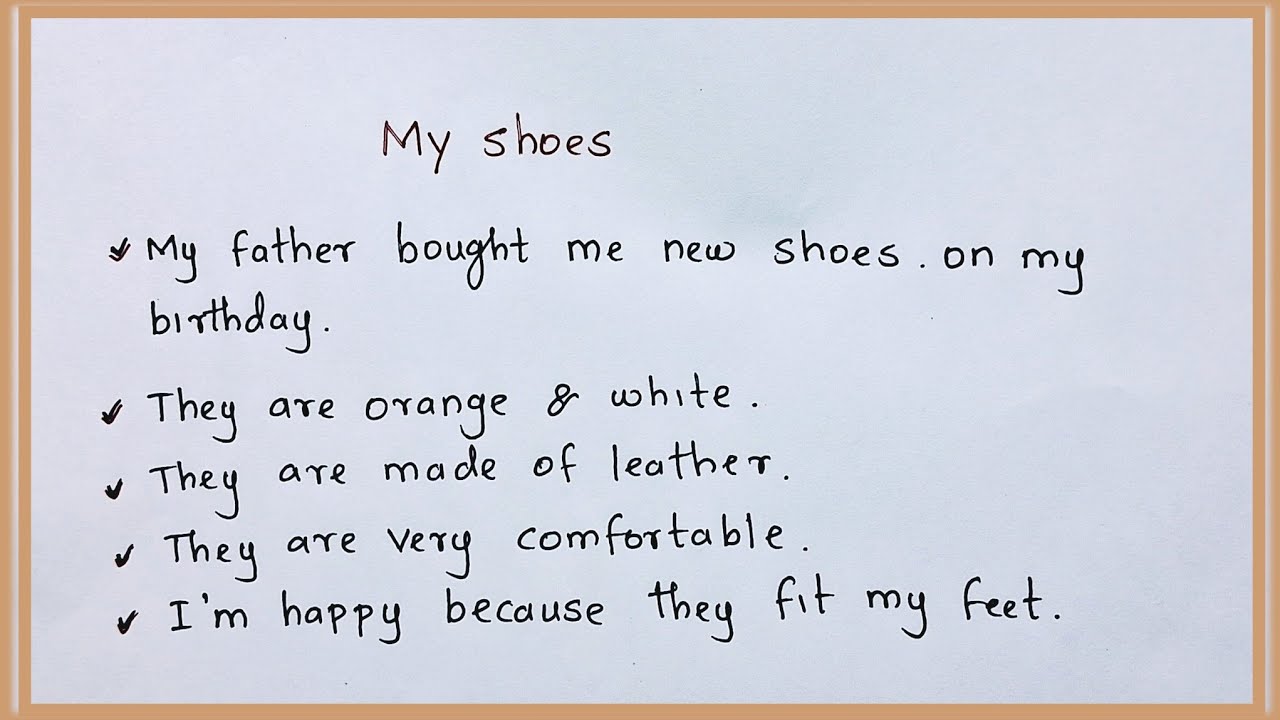 My shoes
My father bought me new shoes. on my
birthday.
They are orange & white.
They are made of leather.
They are very comfortable.
I'm happy because they fit my feet.